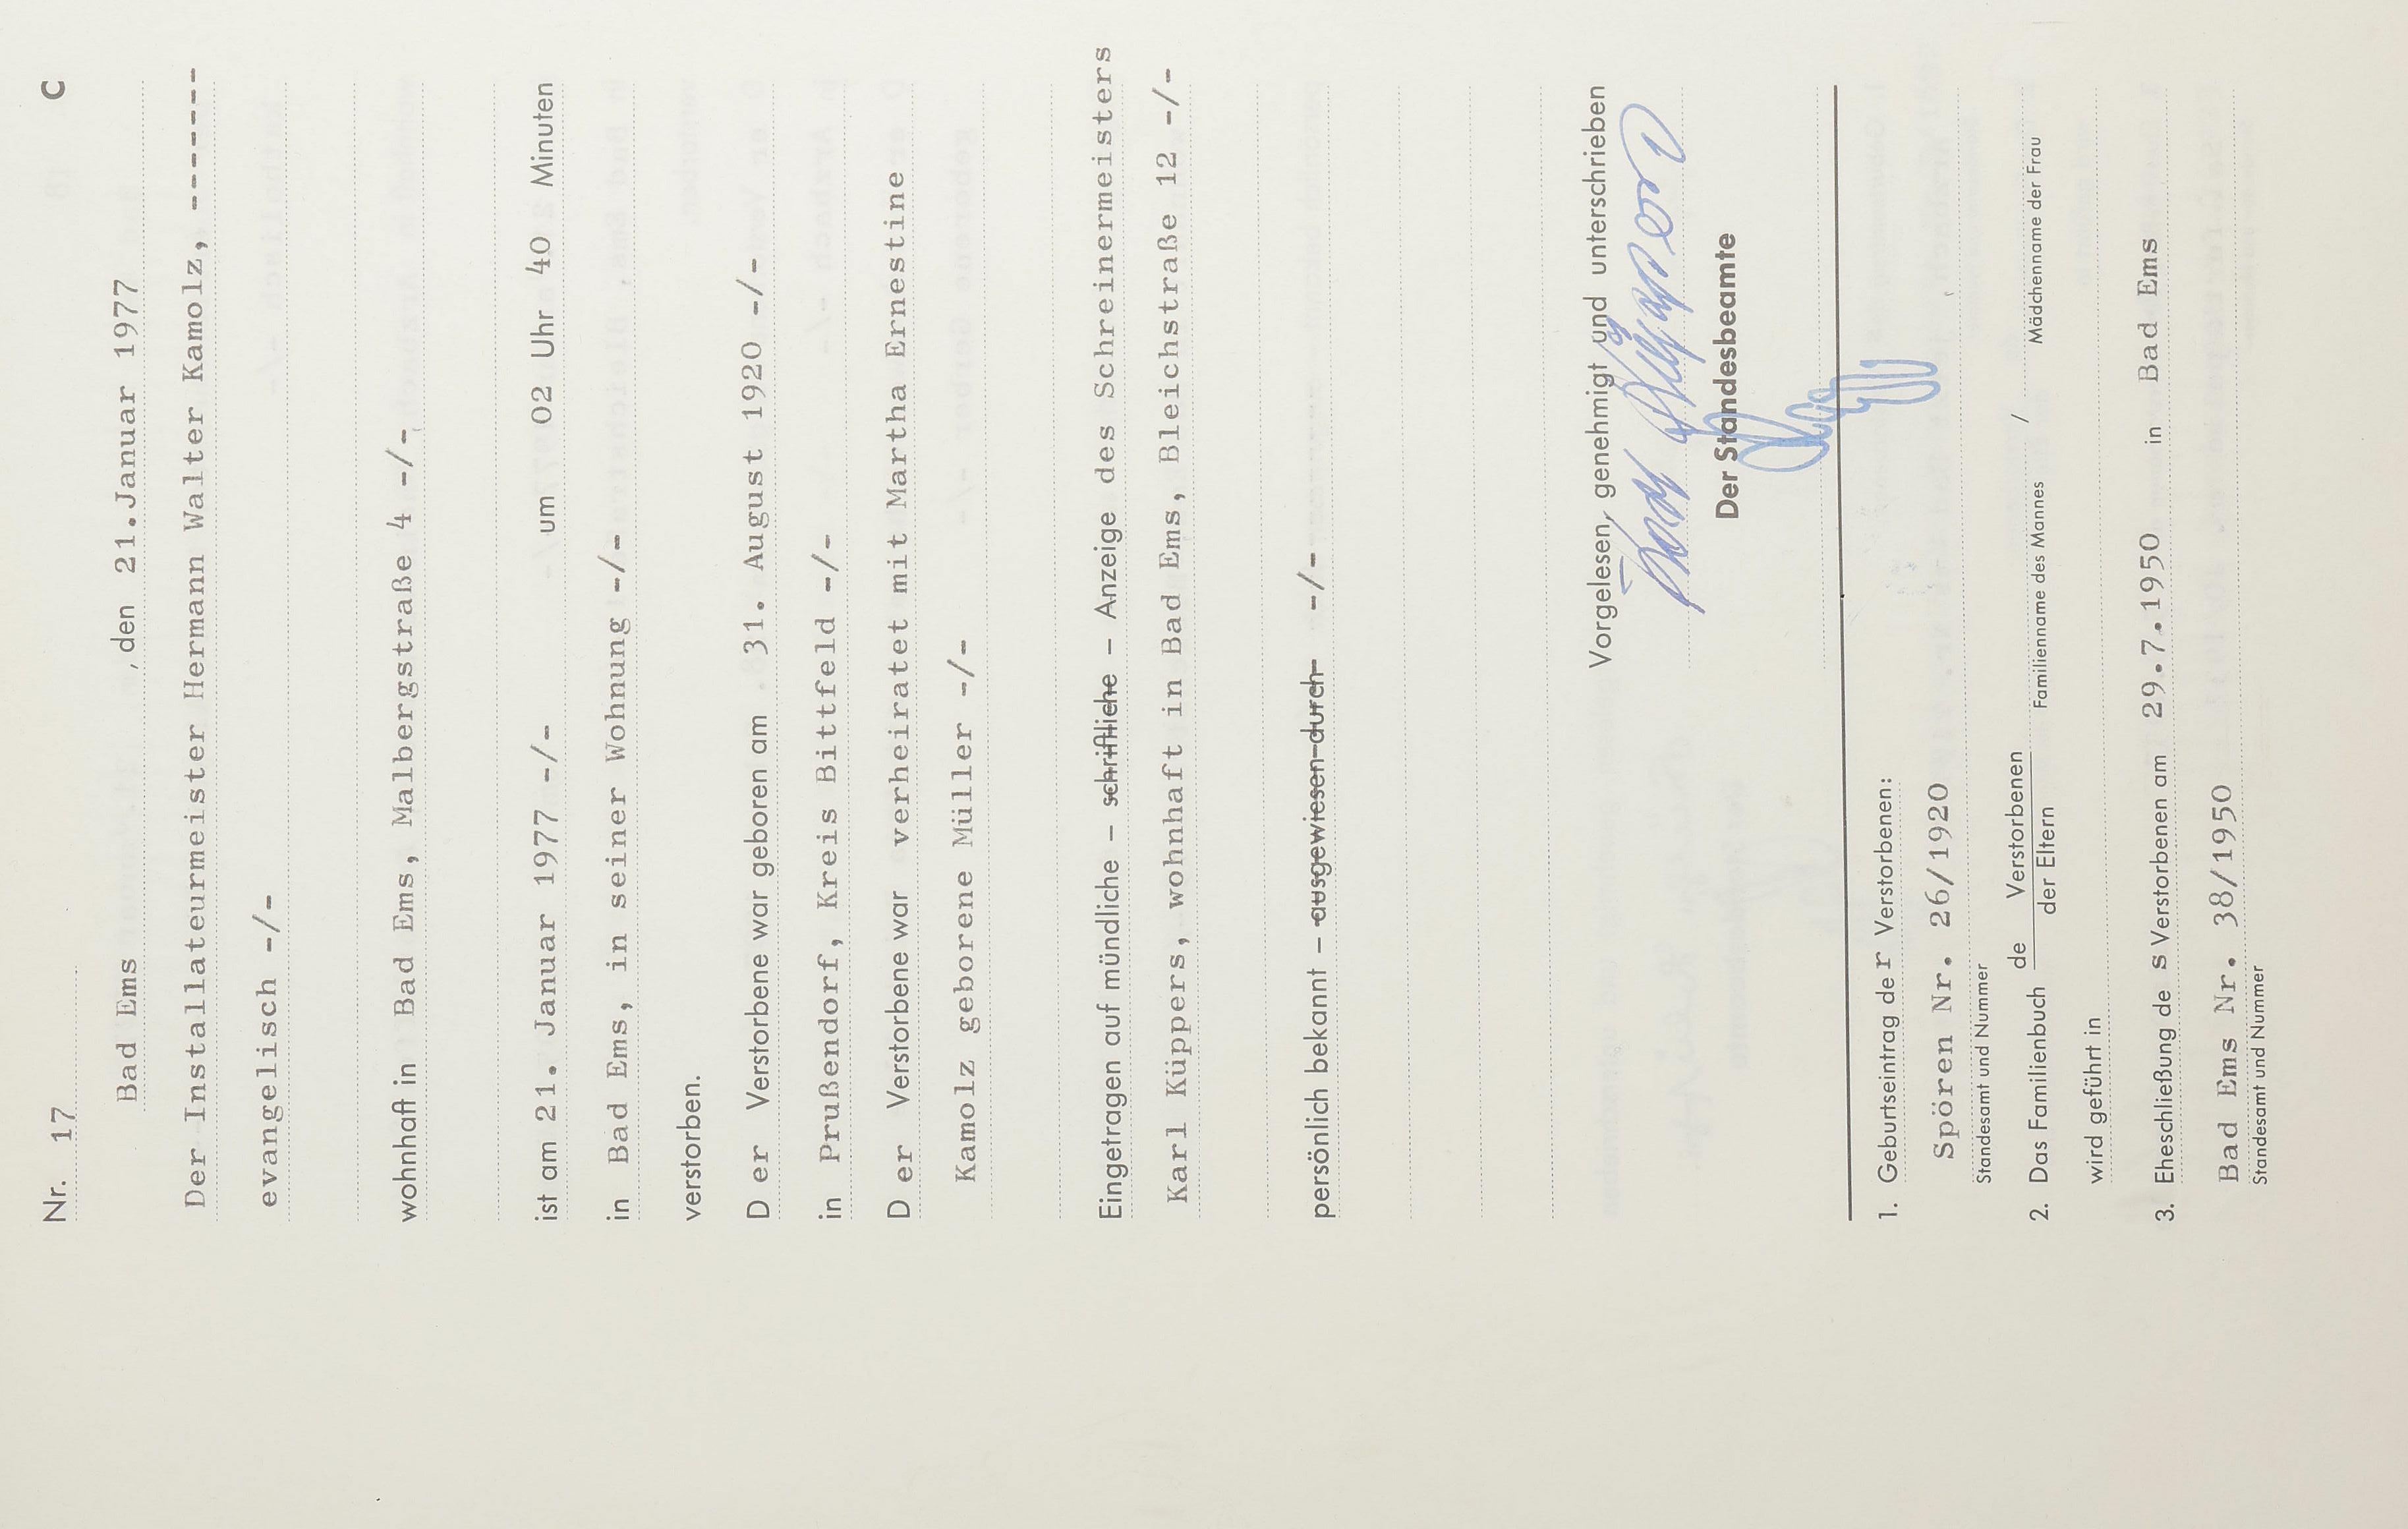 Nr. 17 C
Bad Ems, den 21.Januar 1977
Der Installateurmeister Hermann Walter Kamolz, -------
evangelisch -/-
wohnhaft in Bad Ems, Malbergstraße 4 -/-
ist am 21. Januar 1977 -/- um 02 Uhr 40 Minuten
in Bad Ems, in seiner Wohnung -/-
verstorben.
D er Verstorbene war geboren am 31. August 1920 -/-
in Prußendorf, Kreis Bittfeld -/-
D er Verstorbene war verheiratet mit Martha Ernestine
Kamolz geborene Müller -/-
Eingetragen auf mündliche – schriftliche – Anzeige des Schreinermeisters
Karl Küppers, wohnhaft in Bad Ems, Bleichstraße 12 -/-
persönlich bekannt – ausgewiesen durch -/-
Vorgelesen, genehmigt und unterschrieben
Der Standesbeamte
1. Geburtseintrag de r Verstorbenen:
Spören Nr. 26/1920
Standesamt und Nummer
2. Das Familienbuch de Verstorbenen /
der Eltern Familienname des Mannes Mädchenname der Frau
wird geführt in
3. Eheschließung de s Verstorbenen am 29.7.1950 in Bad Ems
Bad Ems Nr. 38/1950
Standesamt und Nummer